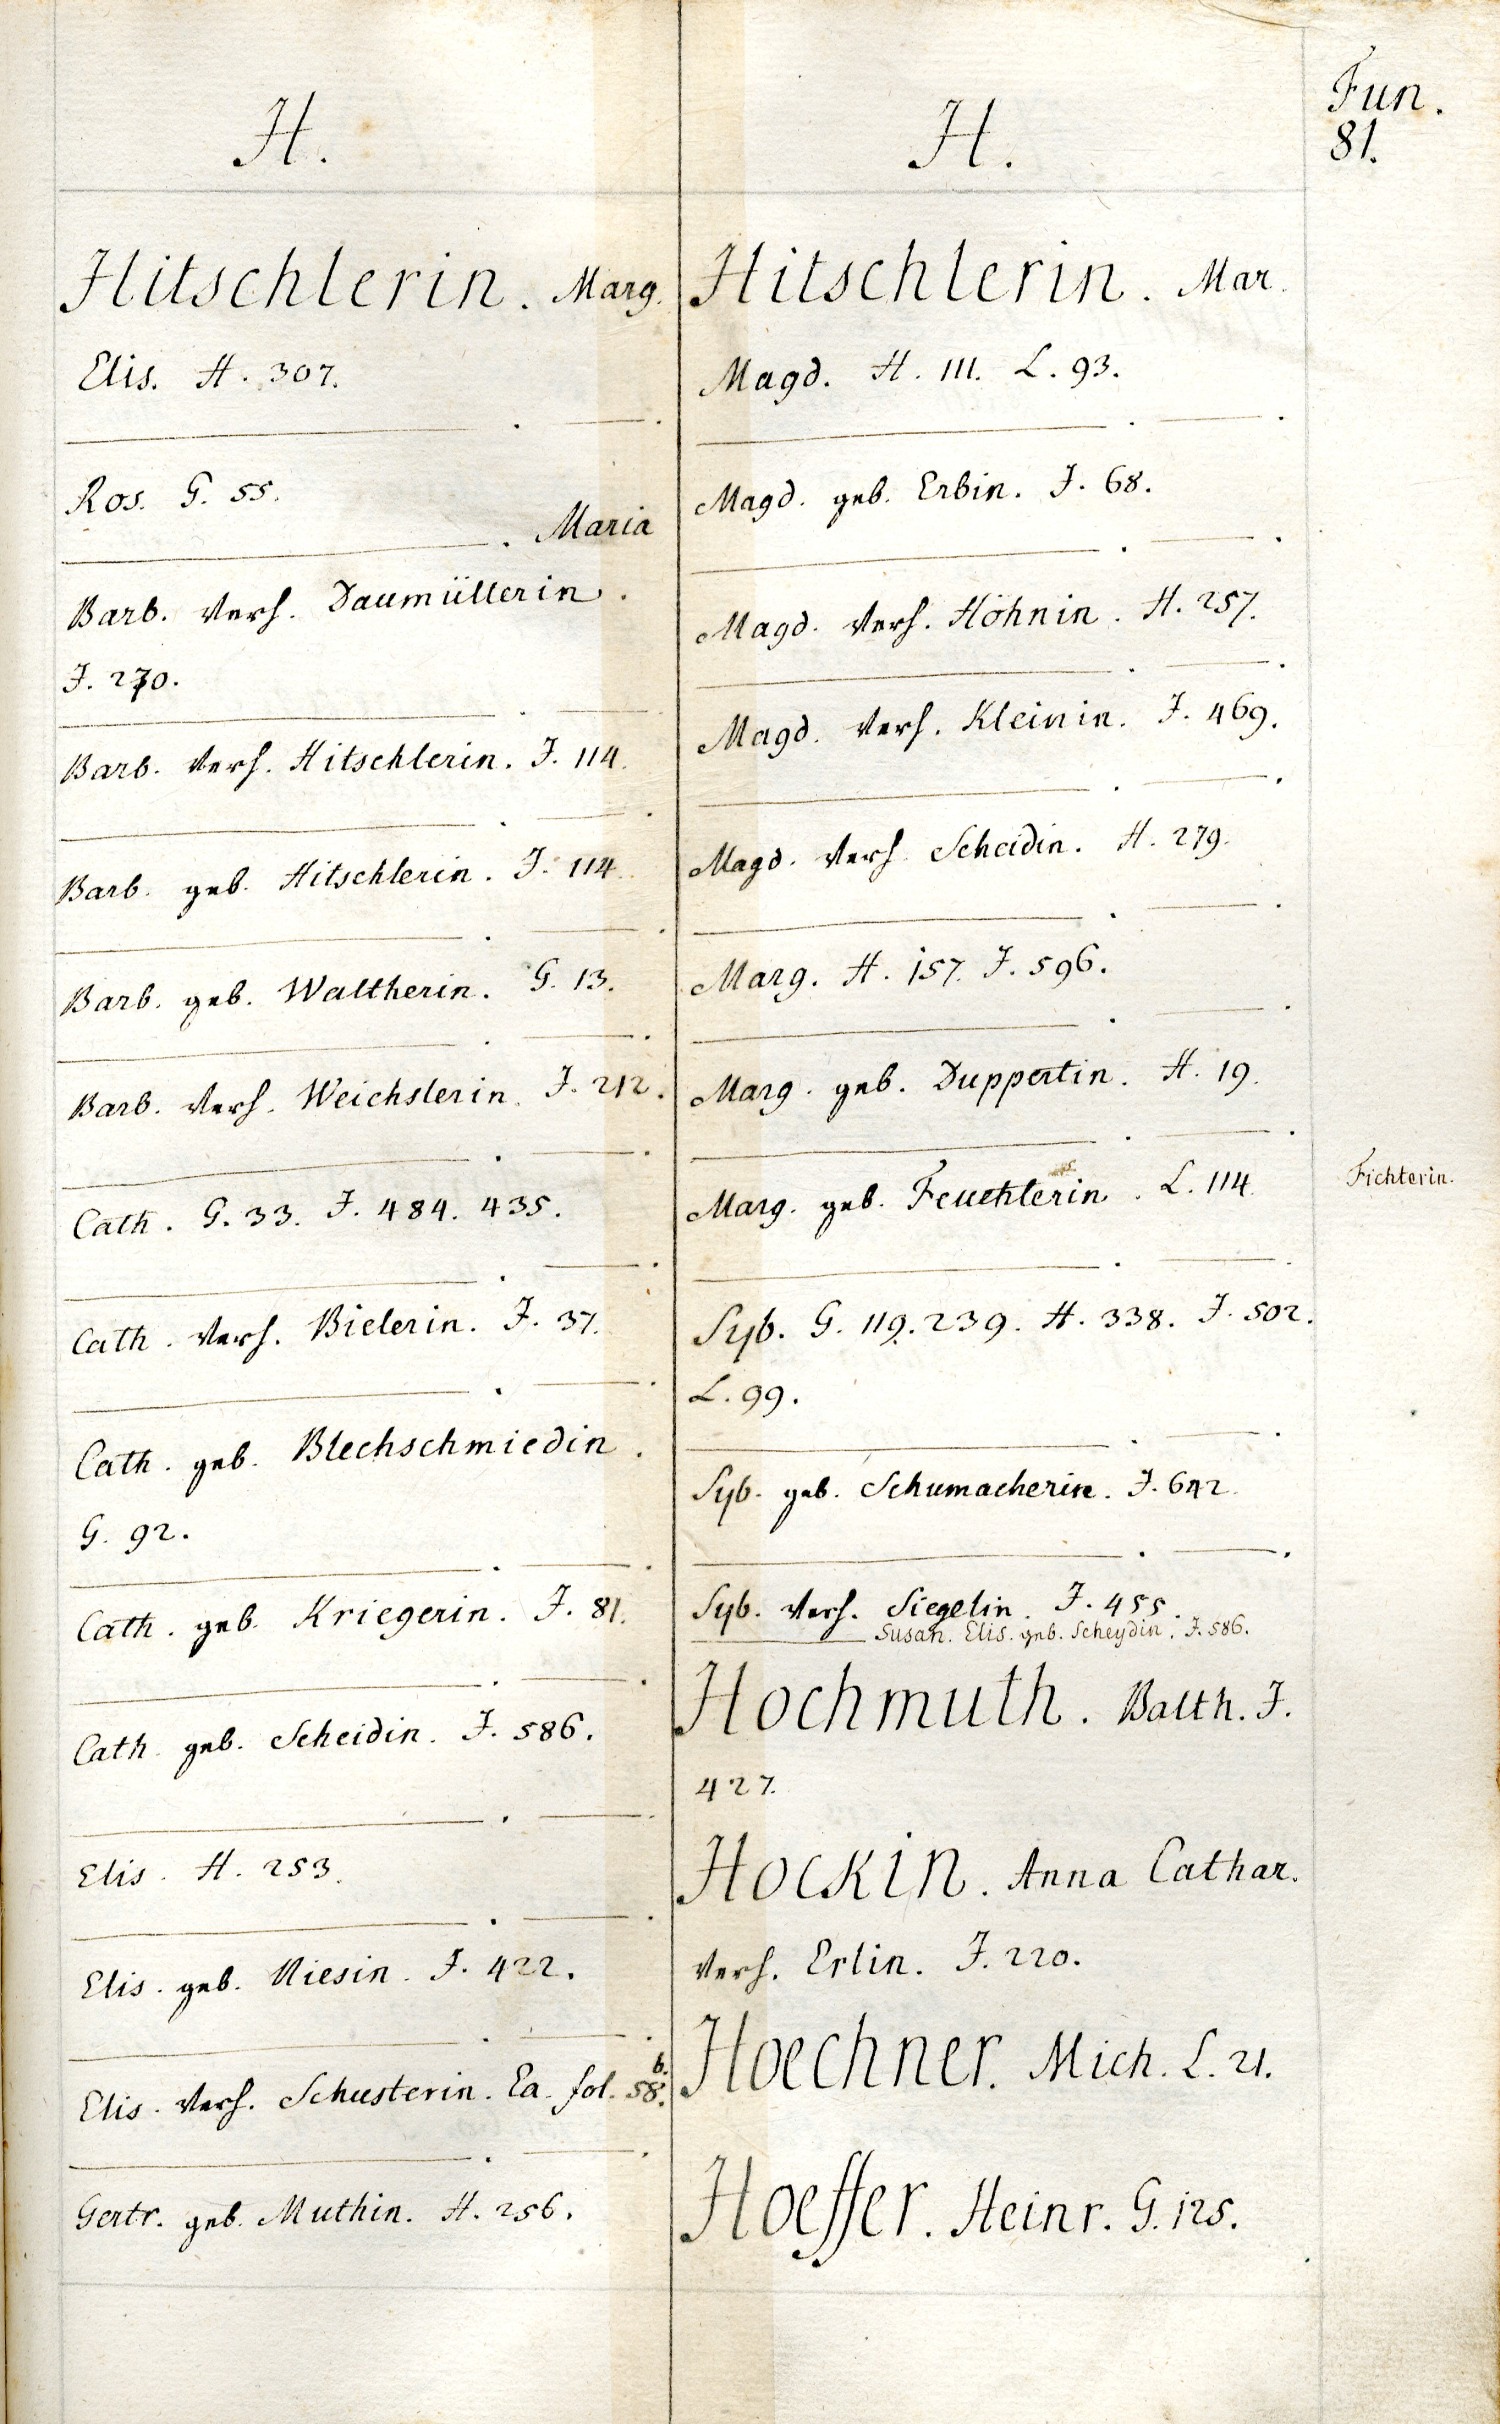 H.
Hitschlerin. Marg.
Elis. H. 307.
Ros. G. 55.
Maria
Barb. verh. Daumüllerin.
J. 270.
Barb. verh. Hitschlerin. J. 114.
Barb. geb. Hitschlerin. J. 114.
Barb. geb. Waltherin. G. 13.
Barb. verh. Weichslerin. J. 212.
Cath. G. 33. J. 484. 435.
Cath. verh. Bielerin. J. 37.
Cath. geb. Blechschmiedin.
G. 92.
Cath. geb. Kriegerin. J. 81.
Cath. geb. Scheidin. J. 586.
Elis. H. 253.
Elis. geb. Niesin. J. 422.
Elis. verh. Schusterin. Ea. fol. 58.b.
Gertr. geb. Muthin. H. 256.
H.
Hitschlerin. Mar.
Magd. H. 111. L. 93.
Magd. geb. Erbin. J. 68.
Magd. verh. Höhnin. H. 257.
Magd. verh. Kleinin. J. 469.
Magd. verh. Scheidin. H. 279.
Marg. H. 157. J. 596.
Marg. geb. Duppertin. H. 19.
Marg. geb. Feuchterin. L. 114.
Syb. G. 119. 239. H. 338. J. 502.
L. 99.
Syb. geb. Schumacherin. J. 642.
Syb. verh. Siegelin. J. 455.
Susan. Elis. geb. Scheydin. J. 586.
Hochmuth. Balth. J.
427.
Hockin. Anna Cathar.
verh. Erlin. J. 220.
Hoechner. Mich. L. 21.
Hoeffer. Heinr. G. 125.
Fun.
81.
Fichterin.